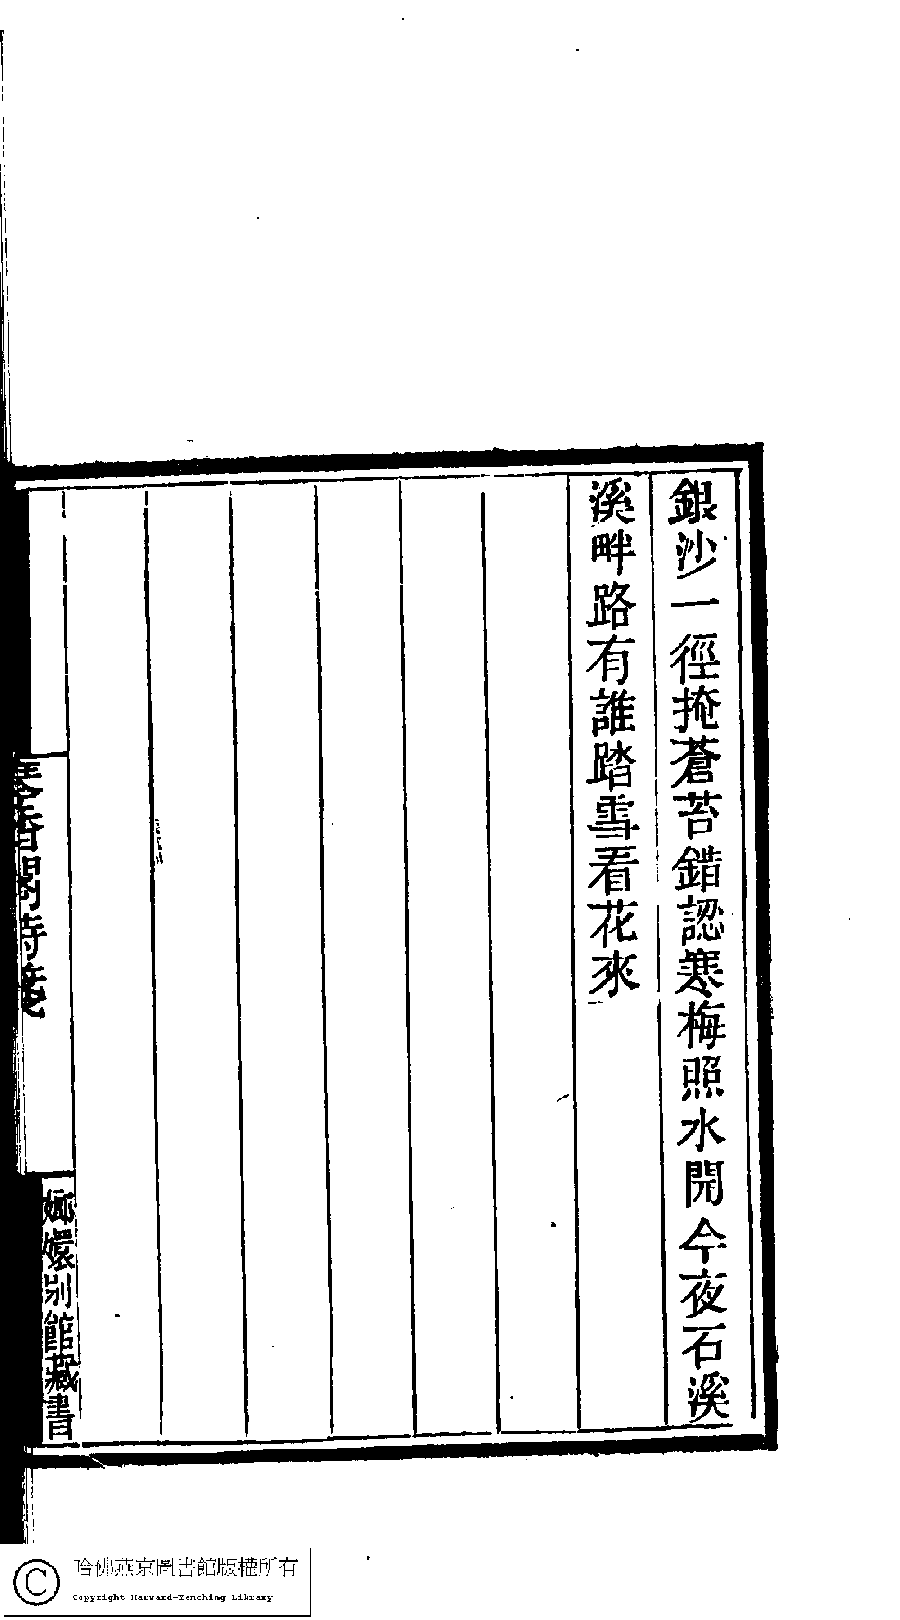 銀沙一徑掩蒼苔錯認寒梅照水開今夜石溪
溪畔路有誰踏雪看花來
琴香閣詩箋
嫏嬛別館藏書
哈佛燕京圖書館版權所有
Copyright Harvard-Yenching Library